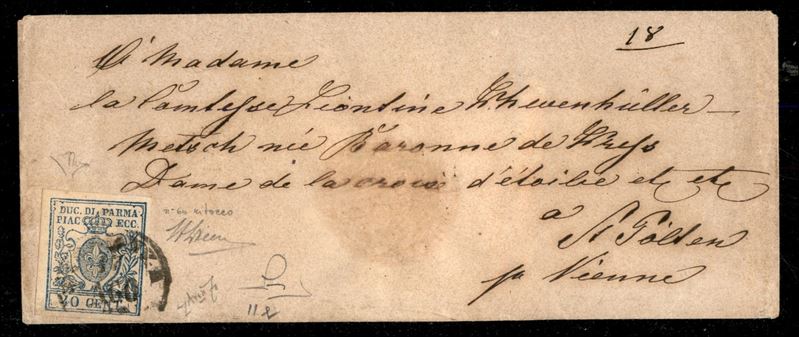 18
A Madame
la Comtesse Léontine Khevenhüller-
Metsch née Baronne de Kress
Dame de la croix d'étoilée etc etc
à
St Pölten
pr Vienne
DUC. DI PARMA
PIAC ECC.
40 CENT.